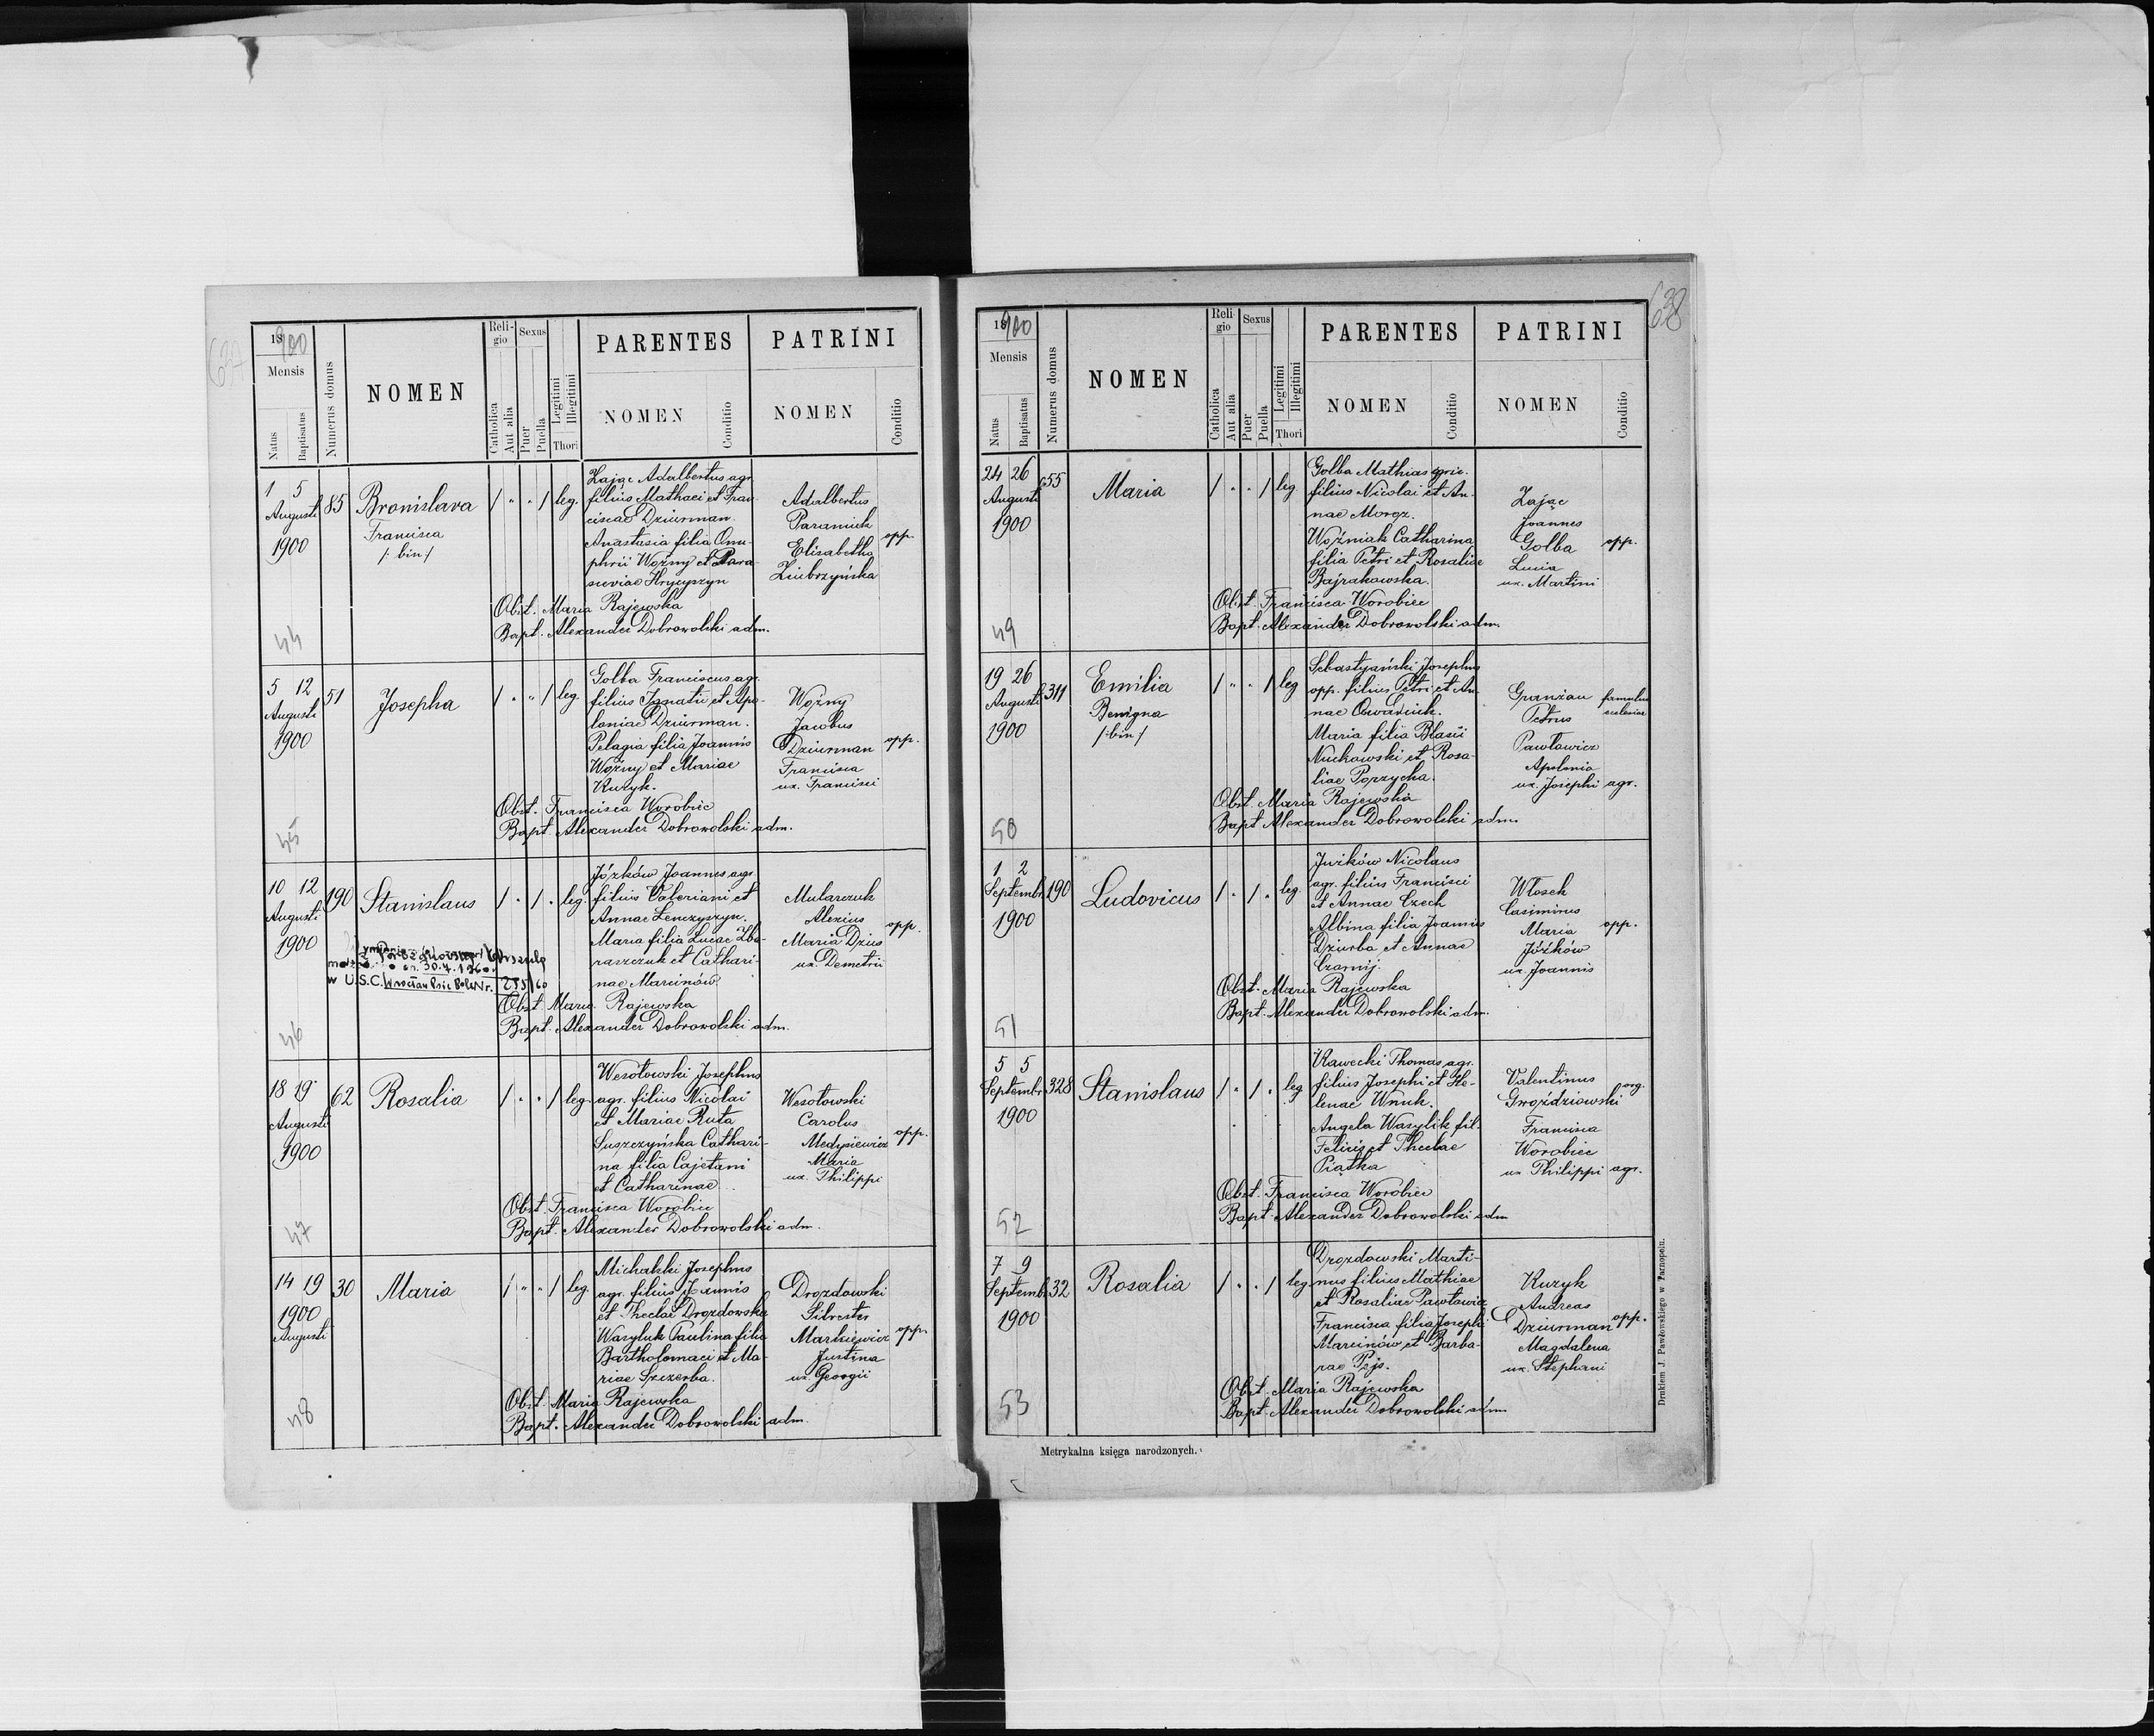 637
1900
Mensis
Natus
Baptisatus
Numerus domus
NOMEN
Religio
Catholica
Aut alia
Sexus
Puer
Puella
Legitimi
Illegitimi
Thori
PARENTES
NOMEN
Conditio
PATRINI
NOMEN
Conditio
1 5
Augusti
1900
85
Bronislava
Francisca
/:bin:/
leg.
Zając Adalbertus agr.
filius Mathaei et Fran-
ciscae Dziurman.
Anastasia filia Onu-
phrii Woźny et Para-
sceviae Hrycyszyn
Adalbertus
Paraniuk
Elisabetha
Ziubrzyńska
opp.
Obst. Maria Rajewska
Bapt. Alexander Dobrowolski adm.
44
5 12
Augusti
1900
51
Josepha
leg.
Golba Franciscus agr.
filius Ignatii et Apo-
loniae Dziurman.
Pelagia filia Joannis
Woźny et Mariae
Kuzyk.
Woźny
Jacobus
Dziurman
Francisca
ux. Francisci
opp.
Obst. Francisca Worobiec
Bapt. Alexander Dobrowolski adm.
45
10 12
Augusti
1900
190
Stanislaus
leg.
Józków Joannes agr.
filius Valeriani et
Annae Lenczyszyn.
Maria filia Lucae Zba-
raszczuk et Cathari-
nae Marcinów.
Mularczuk
Alexius
Maria Dzius
ux. Demetrii
opp.
30.4.1960
w U.S.C. Wrocław Psie Pole Nr. 285/60
Obst. Maria Rajewska
Bapt. Alexander Dobrowolski adm.
46
18 19
Augusti
1900
62
Rosalia
leg.
Wesołowski Josephus
agr. filius Nicolai
et Mariae Ruta
Suszczyńska Cathari-
na filia Cajetani
et Catharinae
Wesołowski
Carolus
Medysiewicz
Maria
ux. Philippi
opp.
Obst. Francisca Worobiec
Bapt. Alexander Dobrowolski adm.
47
14 19
1900
Augusti
30
Maria
leg.
Michalski Josephus
agr. filius Joannis
et Theclae Drozdowska
Wasyluk Paulina filia
Bartholomaei et Ma-
riae Szczerba.
Drozdowski
Silvester
Markiewicz
Justina
ux. Georgii
opp.
Obst. Maria Rajewska
Bapt. Alexander Dobrowolski adm.
48
638
1900
Mensis
Natus
Baptisatus
Numerus domus
NOMEN
Religio
Catholica
Aut alia
Sexus
Puer
Puella
Legitimi
Illegitimi
Thori
PARENTES
NOMEN
Conditio
PATRINI
NOMEN
Conditio
24 26
Augusti
1900
55
Maria
leg
Golba Mathias agric.
filius Nicolai et An-
nae Moroz.
Woźniak Catharina
filia Petri et Rosaliae
Bajrakowska.
Zając
Joannes
Golba
Lucia
ux. Martini
opp.
Obst. Francisca Worobiec
Bapt. Alexander Dobrowolski adm.
49
19 26
Augusti
1900
311
Emilia
Benigna
/:bin:/
leg
Sebastyański Josephus
opp. filius Petri et An-
nae
Maria filia Blasii
Nuckowski et Rosa-
liae Porzycka.
Petrus
famulus
ecclesiae
Pawłowicz
Apolonia
ux. Josephi agr.
Obst. Maria Rajewska
Bapt. Alexander Dobrowolski adm.
50
1 2
Septembr.
1900
190
Ludovicus
leg.
Jużków Nicolaus
agr. filius Francisci
et Annae Czech
Albina filia Joannis
Dziurba et Annae
Czarnij.
Włosek
Casimirus
Maria
Józków
ux. Joannis
opp.
Obst. Maria Rajewska
Bapt. Alexander Dobrowolski adm.
51
5 5
Septembr.
1900
328
Stanislaus
leg
Kawecki Thomas agr.
filius Josephi et He-
lenae Wnuk.
Angela Wasylik fil.
Felicis et Theclae
Piątka
Valentinus
Gwoździowski
org.
Francisca
Worobiec
ux. Philippi agr.
Obst. Francisca Worobiec
Bapt. Alexander Dobrowolski adm
52
7 9
Septembr.
1900
32
Rosalia
leg.
Drozdowski Marti-
nus filius Mathiae
et Rosaliae Pawłowicz
Francisca filia Josephi
Marcinów et Barba-
rae
Kuzyk
Andreas
Dziurman
Magdalena
ux. Stephani
opp.
Obst. Maria Rajewska
Bapt. Alexander Dobrowolski adm.
53
Metrykalna księga narodzonych.
Drukiem J. Pawłowskiego w Tarnopolu.